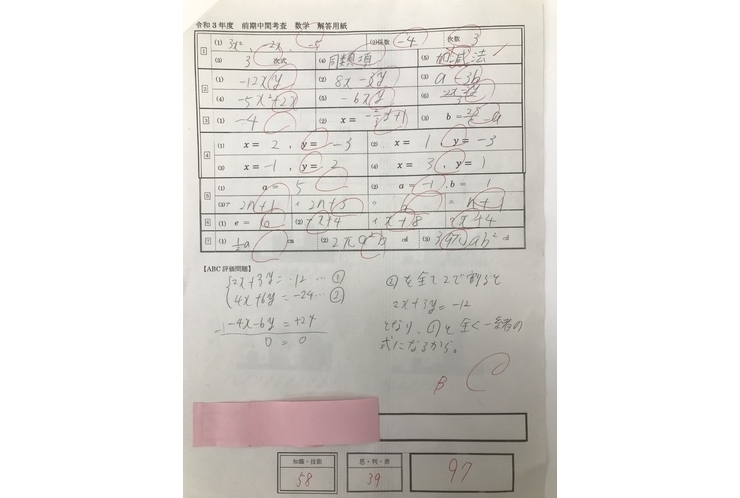 令和3年度 前期中間考査 数学 解答用紙
1 (1) 3x², -2x, -5 (2)係数 -4 次数 3
(3) 3 次式 (4) 同類項 (5) 加減法
2 (1) -12x²y (2) 8x-3y (3) a-3b
(4) -5x²+2x (5) -6xy (6)
3 (1) -4 (2) x= (3) b=
4 (1) x= 2, y= -3 (2) x= 1, y= -3
(3) x= -1, y= 2 (4) x= 3, y= 1
5 (1) a= 5 (2) a= -1, b= 1
(3)ア 2n+1 イ 2n+3 ウ エ n+1
6 (1) e= 10 (2) x+4 イ x+8
7 (1) ½a cm (2) 2πa²b (3)
【ABC評価問題】
2x+3y=-12 … ①
4x+6y=-24 … ②
-4x-6y=+24
0=0
②を全て2で割ると
2x+3y=-12
となり、①と全く一緒の
式になるから。
B
知識・技能
58
思・判・表
39
97